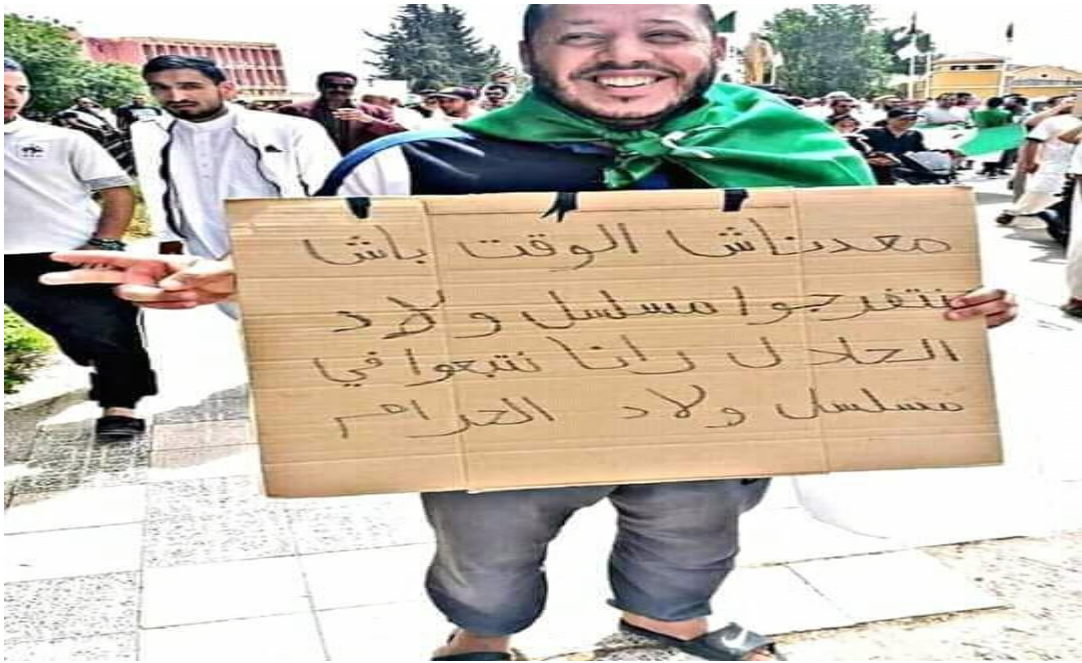 معدناشا الوقت باشا
نتفرجوا مسلسل ولاد
الحلال رانا نتبعوا في
مسلسل ولاد الحرام